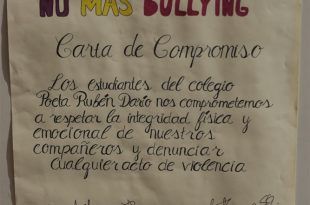 NO MAS BULLYING
Carta de Compromiso
Los estudiantes del colegio
Poeta Rubén Darío nos comprometemos
a respetar la integridad física y
emocional de nuestros
compañeros y denunciar
cualquier acto de violencia